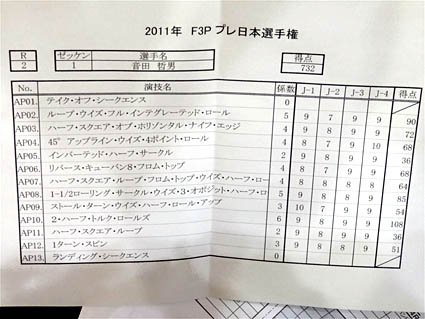 2011年 F3P プレ日本選手権
R ゼッケン 選手名 得点
2 1 音田 哲男 732
No. 演技名 係数 J-1 J-2 J-3 J-4 得点
AP01. テイク・オフ・シークエンス 0
AP02. ループ・ウイズ・フル・インテグレーテッド・ロール 5 9 7 9 9 90
AP03. ハーフ・スクエア・オブ・ホリゾンタル・ナイフ・エッジ 4 9 8 9 9 72
AP04. 45° アップライン・ウイズ・4ポイント・ロール 4 8 7 9 10 68
AP05. インバーテッド・ハーフ・サークル 2 9 8 9 9 36
AP06. リバース・キューバン8・フロム・トップ 4 9 8 8 9 68
AP07. ハーフ・スクエア・ループ・フロム・トップ・ウイズ・ハーフ・ロ 4 8 8 8 9 64
AP08. 1-1/2ローリング・サークル・ウイズ・3・オポジット・ハーフ・ロ 5 9 8 8 9 85
AP09. ストール・ターン・ウイズ・ハーフ・ロール・アップ 3 10 7 9 9 54
AP10. 2・ハーフ・トルク・ロールズ 6 9 9 9 9 108
AP11. ハーフ・スクエア・ループ 2 9 8 9 9 36
AP12. 1ターン・スピン 3 9 8 8 9 51
AP13. ランディング・シークエンス 0